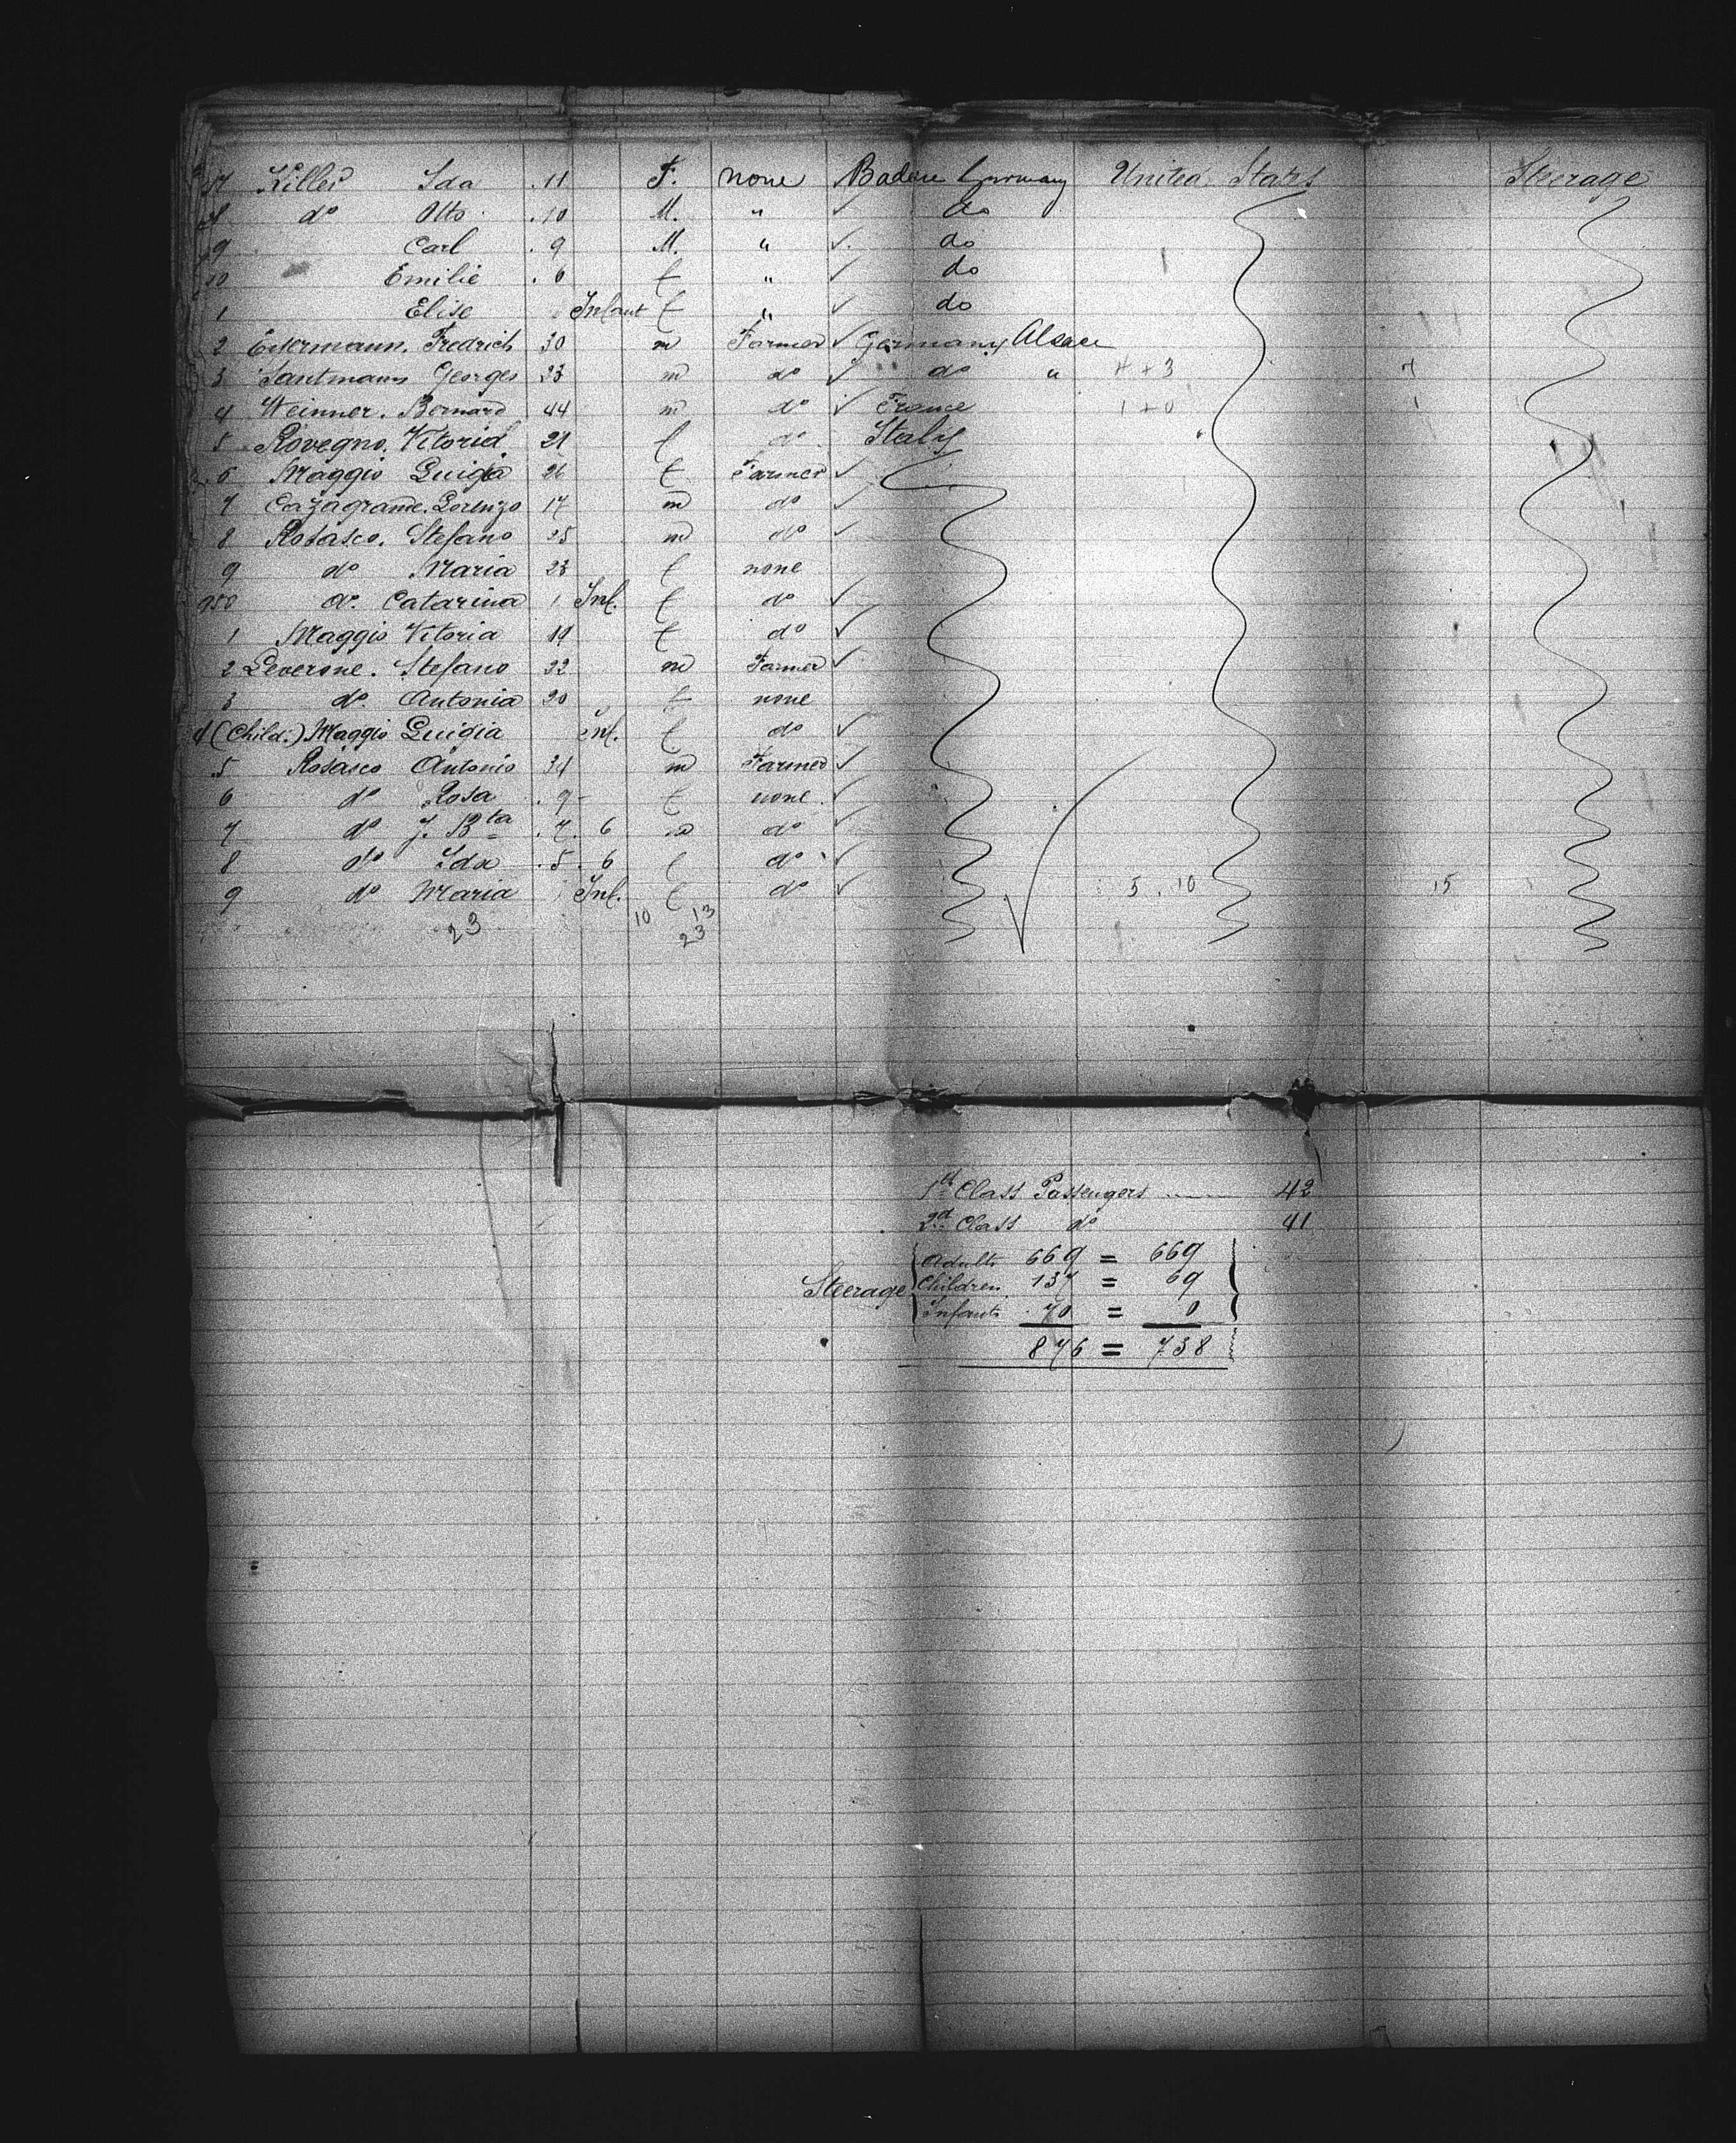 37 Killer Ida 11 F. none Badere Germany United States Steerage
8 do Otto 10 M. " ✓ do
9 Carl 9 M. " ✓ do
Emilie 6 f " ✓ do
1 Elise Infant f " ✓ do
2 Fredrich 30 m Farmer ✓ Germany Alsace
3 Santmann Georges 23 m do ✓ do " 4 + 3 7
4 Weinner. Bernard 44 m do ✓ France 1 + 0 1
5 Rovegno. Vitoria 21 f do Italy
6 Maggio Luigia 26 f Farmer ✓
7 Cazagrame. Lorenzo 17 m do ✓
8 Rosasco. Stefano 25 m do ✓
9 do Maria 23 f none
950 do. Catarina 1 Inf. f do ✓
1 Maggio Vitoria 19 f do ✓
2 Leverone. Stefano 22 m Farmer ✓
3 do. Antonia 20 f none
4 (Child.) Maggio Luigia inf. f do ✓
5 Rosasco Antonio 34 m Farmer ✓
6 do Rosa 9 f none ✓
7 do J. Bta 7. 6 m do ✓
8 do Ida 5. 6 f do ✓
9 do Maria Inf. f do ✓ 5. 10 15
23 10 13
23
1st Class Passengers ...... 42
2d Class do 41
Steerage
Adults 669 = 669
Children 137 = 69
Infants 70 = 0
876 = 738